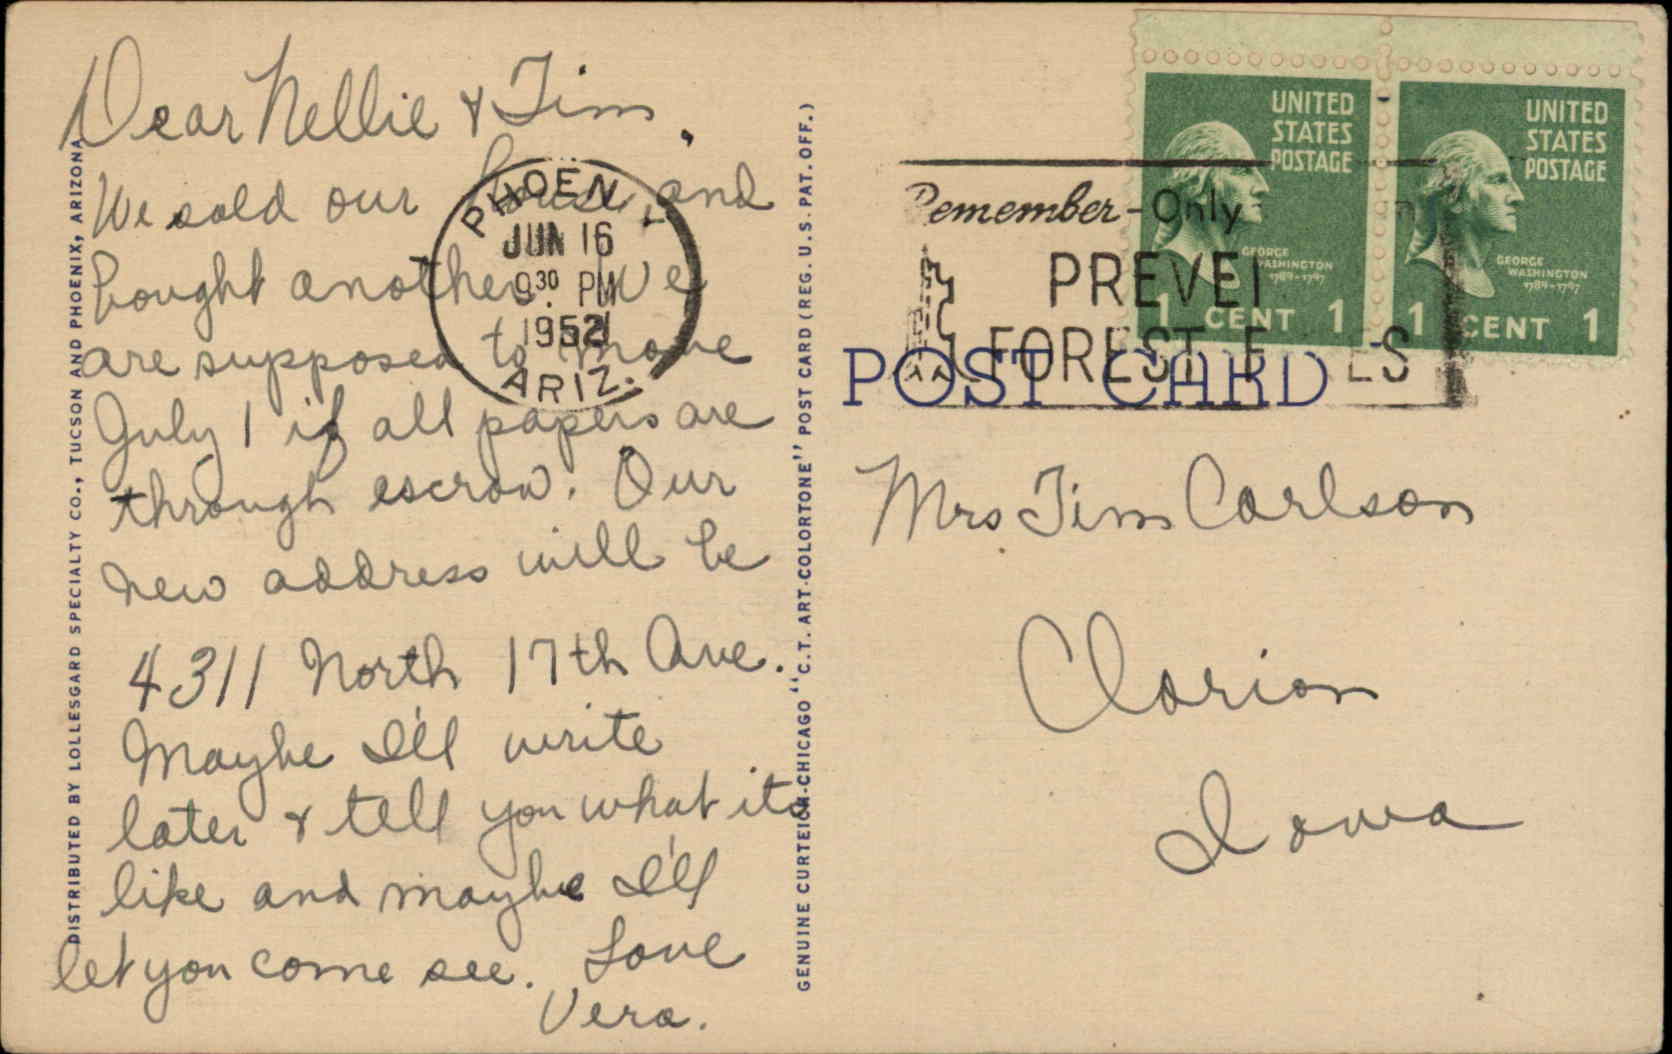 Dear Nellie & Tim,
We sold our house and
bought another. We
are supposed to move
July 1 if all papers are
through escrow. Our
new address will be
4311 North 17th Ave.
Maybe I'll write
later & tell you what its
like and maybe I'll
let you come see. Love
Vera.
DISTRIBUTED BY LOLLESGARD SPECIALTY CO., TUCSON AND PHOENIX, ARIZONA
GENUINE CURTEICH-CHICAGO "C.T. ART-COLORTONE" POST CARD (REG. U.S. PAT. OFF.)
PHOEN
JUN 16
9 30 PM
1952
ARIZ.
Remember-Only
PREVE
FOREST F ES
UNITED
STATES
POSTAGE
GEORGE
WASHINGTON
1789-1797
1 CENT 1
UNITED
STATES
POSTAGE
GEORGE
WASHINGTON
1789-1797
1 CENT 1
POST CARD
Mrs Tim Carlson
Clarion
Iowa